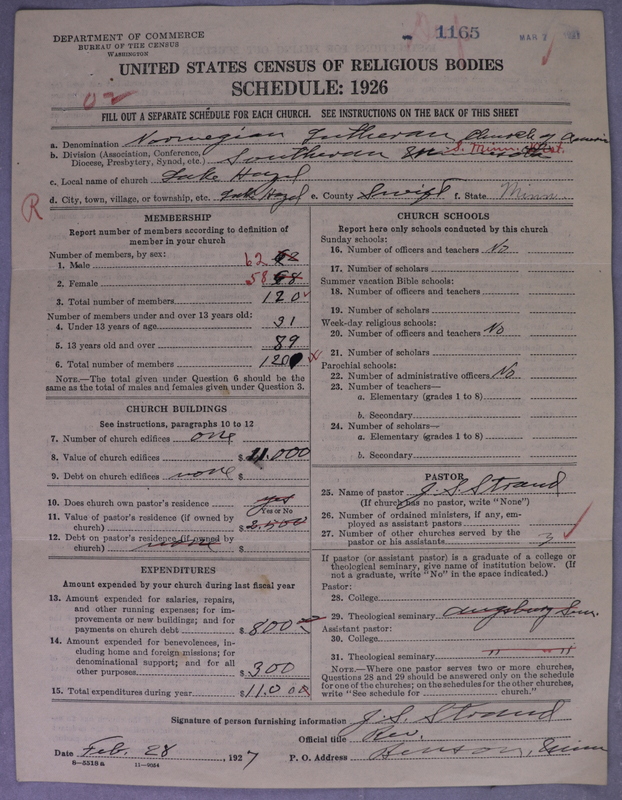 1165
MAR 7
DEPARTMENT OF COMMERCE
BUREAU OF THE CENSUS
WASHINGTON
UNITED STATES CENSUS OF RELIGIOUS BODIES
SCHEDULE: 1926
FILL OUT A SEPARATE SCHEDULE FOR EACH CHURCH. SEE INSTRUCTIONS ON THE BACK OF THIS SHEET
a. Denomination Norwegian Lutheran Church of America
b. Division (Association, Conference, Diocese, Presbytery, Synod, etc.) Southern S. Minn. Dist.
c. Local name of church Lake Hazel
d. City, town, village, or township, etc. Lake Hazel e. County Swift f. State Minn.
R
MEMBERSHIP
Report number of members according to definition of
member in your church
Number of members, by sex:
1. Male 62
2. Female 58
3. Total number of members 120
Number of members under and over 13 years old:
4. Under 13 years of age 31
5. 13 years old and over 89
6. Total number of members 120
NOTE.—The total given under Question 6 should be the
same as the total of males and females given under Question 3.
CHURCH BUILDINGS
See instructions, paragraphs 10 to 12
7. Number of church edifices one
8. Value of church edifices $ 11.000
9. Debt on church edifices none $
10. Does church own pastor's residence yes
Yes or No
11. Value of pastor's residence (if owned by
church) $ 2.500
12. Debt on pastor's residence (if owned by
church) none $
EXPENDITURES
Amount expended by your church during last fiscal year
13. Amount expended for salaries, repairs,
and other running expenses; for im-
provements or new buildings; and for
payments on church debt $ 800
14. Amount expended for benevolences, in-
cluding home and foreign missions; for
denominational support; and for all
other purposes. $ 300
15. Total expenditures during year $ 11.00
CHURCH SCHOOLS
Report here only schools conducted by this church
Sunday schools:
16. Number of officers and teachers No
17. Number of scholars
Summer vacation Bible schools:
18. Number of officers and teachers
19. Number of scholars
Week-day religious schools:
20. Number of officers and teachers No
21. Number of scholars
Parochial schools:
22. Number of administrative officers No
23. Number of teachers—
a. Elementary (grades 1 to 8)
b. Secondary
24. Number of scholars—
a. Elementary (grades 1 to 8)
b. Secondary
PASTOR
25. Name of pastor J. S. Strand
(If church has no pastor, write "None")
26. Number of ordained ministers, if any, em-
ployed as assistant pastors
27. Number of other churches served by the
pastor or his assistants 3
If pastor (or assistant pastor) is a graduate of a college or
theological seminary, give name of institution below. (If
not a graduate, write "No" in the space indicated.)
Pastor:
28. College
29. Theological seminary Augsburg Sem.
Assistant pastor:
30. College
31. Theological seminary " "
NOTE.—Where one pastor serves two or more churches,
Questions 28 and 29 should be answered only on the schedule
for one of the churches; on the schedules for the other churches,
write "See schedule for church."
Signature of person furnishing information J. S. Strand
Official title Rev.
Date Feb. 28, 1927 P. O. Address Benson, Minn
8—5518a 11—9084